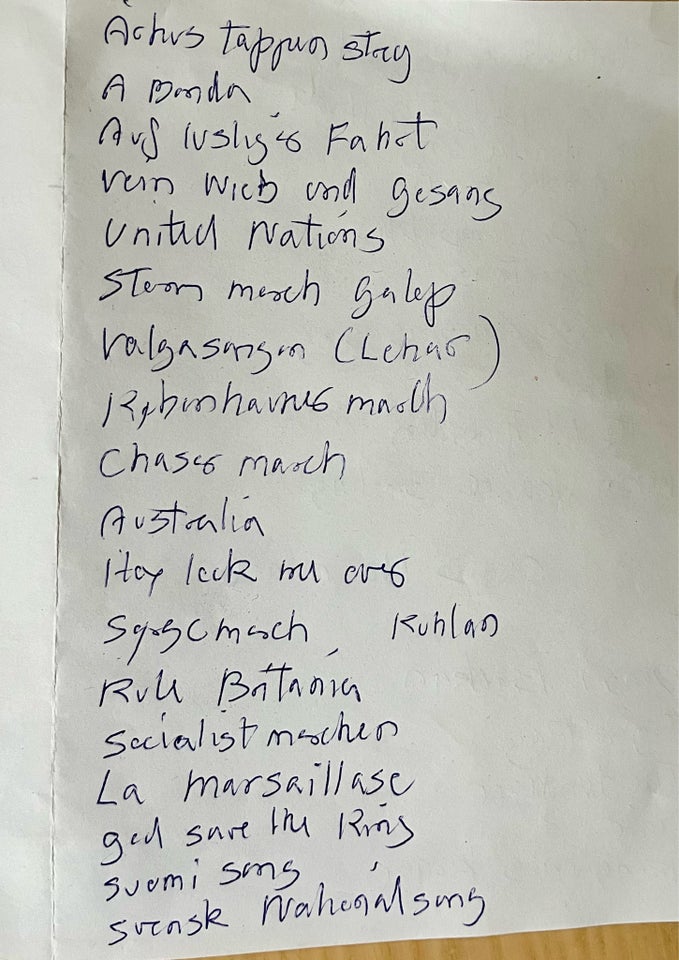 A Banda
Auf lustiges Fahrt
Vein Wieb und gesang
United Nations
Storm march galop
Valgasangen (Lehar)
Københavner march
Chaser march
Australia
Hay look me over
Sørgemarch Kuhlau
Rule Brittania
Socialist marchen
La Marsaillase
god save the King
suomi sang
svensk Nationalsang